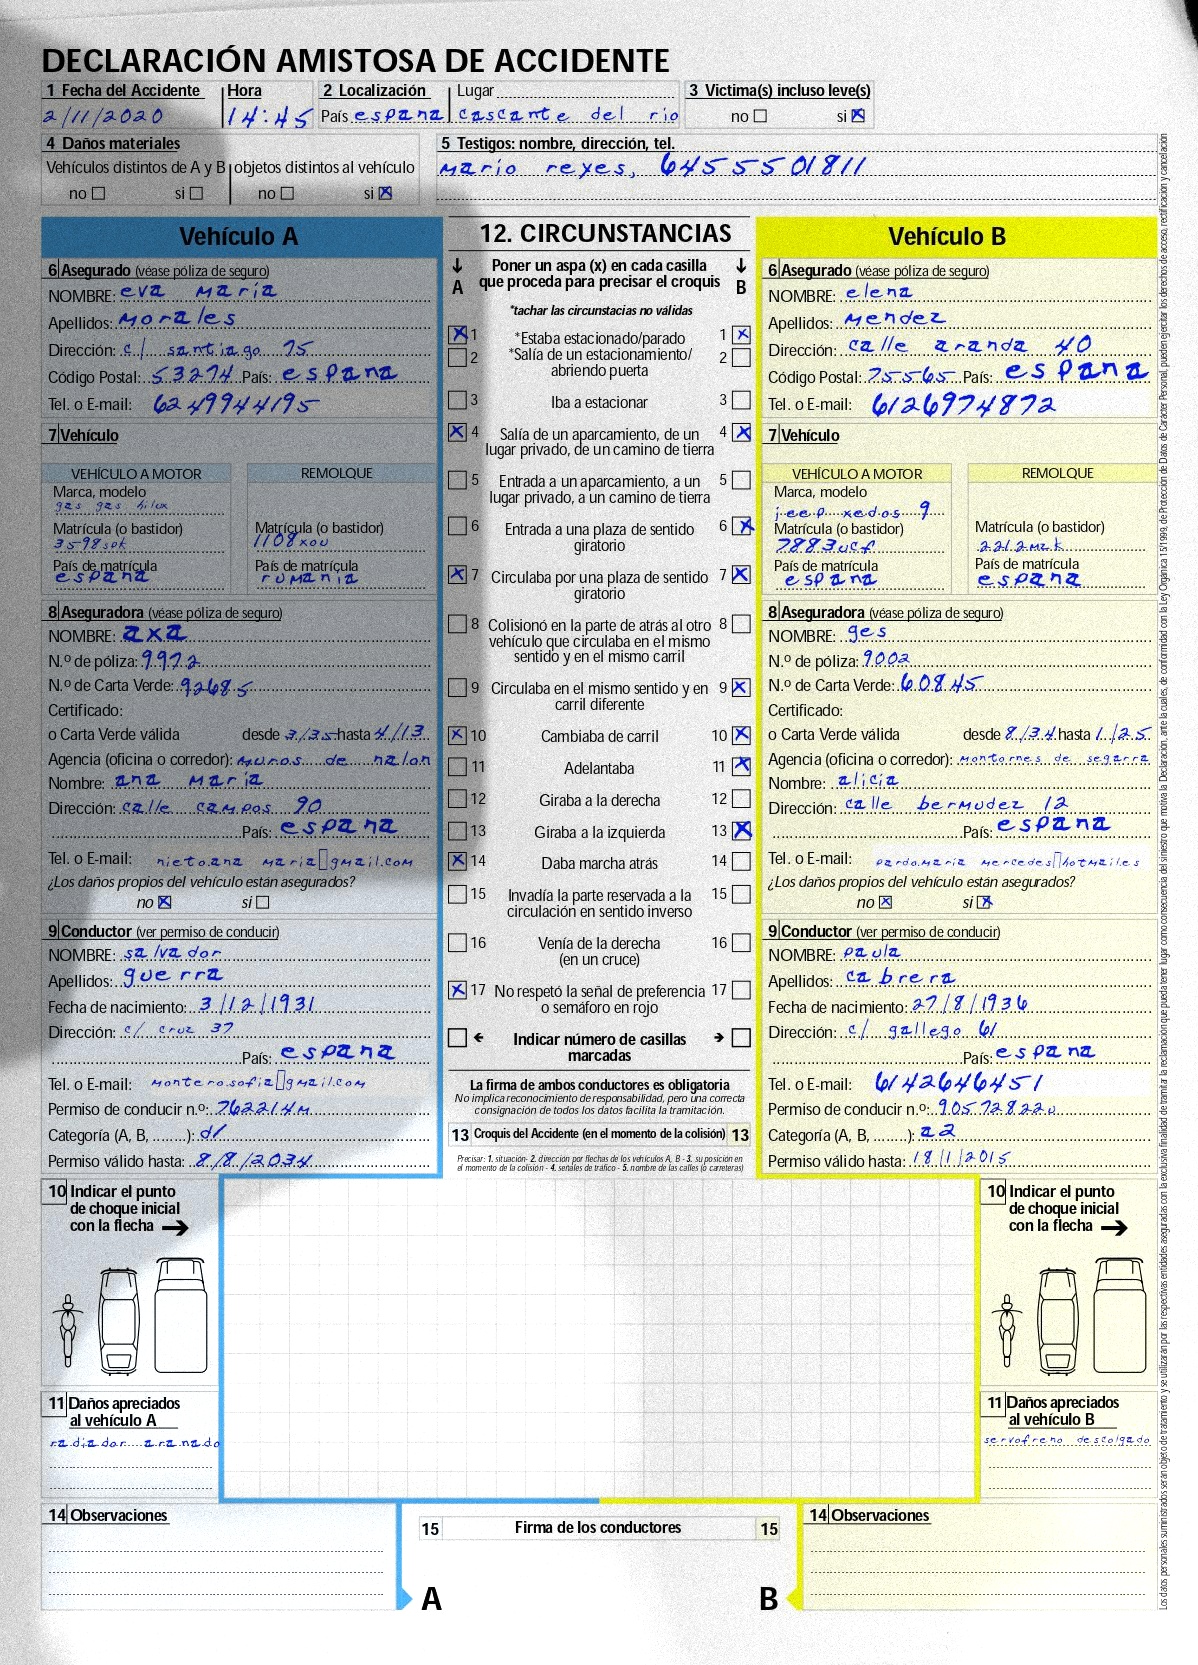 DECLARACIÓN AMISTOSA DE ACCIDENTE
1 Fecha del Accidente Hora 2 Localización Lugar 3 Victima(s) incluso leve(s)
2/11/2020 14:45 País españa cascante del rio no si
4 Daños materiales 5 Testigos: nombre, dirección, tel.
Vehículos distintos de A y B objetos distintos al vehículo mario reyes, 6455501811
no si no si
Vehículo A
6 Asegurado (véase póliza de seguro)
NOMBRE: eva maría
Apellidos: morales
Dirección: c/ santiago 75
Código Postal: 53274 País: españa
Tel. o E-mail: 6249944195
7 Vehículo
VEHÍCULO A MOTOR REMOLQUE
Marca, modelo
gas gas hilux
Matrícula (o bastidor) Matrícula (o bastidor)
3598spk 1108xou
País de matrícula País de matrícula
españa rumania
8 Aseguradora (véase póliza de seguro)
NOMBRE: axa
N.º de póliza: 9972
N.º de Carta Verde: 92685
Certificado:
o Carta Verde válida desde 3/35 hasta 4/13
Agencia (oficina o corredor): muros de nalon
Nombre: ana maría
Dirección: calle campos 90
País: españa
Tel. o E-mail: nieto.ana maria gmail.com
¿Los daños propios del vehículo están asegurados?
no si
9 Conductor (ver permiso de conducir)
NOMBRE: salvador
Apellidos: guerra
Fecha de nacimiento: 3/12/1931
Dirección: c/ cruz 37
País: españa
Tel. o E-mail: montero.sofia gmail.com
Permiso de conducir n.º: 762214m
Categoría (A, B, ........): d1
Permiso válido hasta: 8/8/2034
12. CIRCUNSTANCIAS
A Poner un aspa (x) en cada casilla que proceda para precisar el croquis B
*tachar las circunstacias no válidas
1 *Estaba estacionado/parado 1
2 *Salía de un estacionamiento/ 2
abriendo puerta
3 Iba a estacionar 3
4 Salía de un aparcamiento, de un 4
lugar privado, de un camino de tierra
5 Entrada a un aparcamiento, a un 5
lugar privado, a un camino de tierra
6 Entrada a una plaza de sentido 6
giratorio
7 Circulaba por una plaza de sentido 7
giratorio
8 Colisionó en la parte de atrás al otro 8
vehículo que circulaba en el mismo
sentido y en el mismo carril
9 Circulaba en el mismo sentido y en 9
carril diferente
10 Cambiaba de carril 10
11 Adelantaba 11
12 Giraba a la derecha 12
13 Giraba a la izquierda 13
14 Daba marcha atrás 14
15 Invadía la parte reservada a la 15
circulación en sentido inverso
16 Venía de la derecha 16
(en un cruce)
17 No respetó la señal de preferencia 17
o semáforo en rojo
Indicar número de casillas
marcadas
La firma de ambos conductores es obligatoria
No implica reconocimiento de responsabilidad, pero una correcta
consignación de todos los datos facilita la tramitación.
13 Croquis del Accidente (en el momento de la colisión) 13
Precisar: 1. situación- 2. dirección por flechas de los vehículos A, B - 3. su posición en
el momento de la colisión - 4. señales de tráfico - 5. nombre de las calles (o carreteras)
Vehículo B
6 Asegurado (véase póliza de seguro)
NOMBRE: elena
Apellidos: mendez
Dirección: calle aranda 40
Código Postal: 75565 País: españa
Tel. o E-mail: 6126974872
7 Vehículo
VEHÍCULO A MOTOR REMOLQUE
Marca, modelo
jeep xedos 9
Matrícula (o bastidor) Matrícula (o bastidor)
7883ucf 2212mzk
País de matrícula País de matrícula
españa españa
8 Aseguradora (véase póliza de seguro)
NOMBRE: ges
N.º de póliza: 9002
N.º de Carta Verde: 60845
Certificado:
o Carta Verde válida desde 8/34 hasta 1/25
Agencia (oficina o corredor): montornes de segarra
Nombre: alicia
Dirección: calle bermudez 12
País: españa
Tel. o E-mail: pardo.maria mercedes hotmail.es
¿Los daños propios del vehículo están asegurados?
no si
9 Conductor (ver permiso de conducir)
NOMBRE: paula
Apellidos: cabrera
Fecha de nacimiento: 27/8/1936
Dirección: c/ gallego 61
País: españa
Tel. o E-mail: 6142646451
Permiso de conducir n.º: 90572822u
Categoría (A, B, ........): a2
Permiso válido hasta: 18/1/2015
10 Indicar el punto
de choque inicial
con la flecha
11 Daños apreciados
al vehículo A
radiador arañado
10 Indicar el punto
de choque inicial
con la flecha
11 Daños apreciados
al vehículo B
servofreno descolgado
14 Observaciones
15 Firma de los conductores 15
A B
14 Observaciones